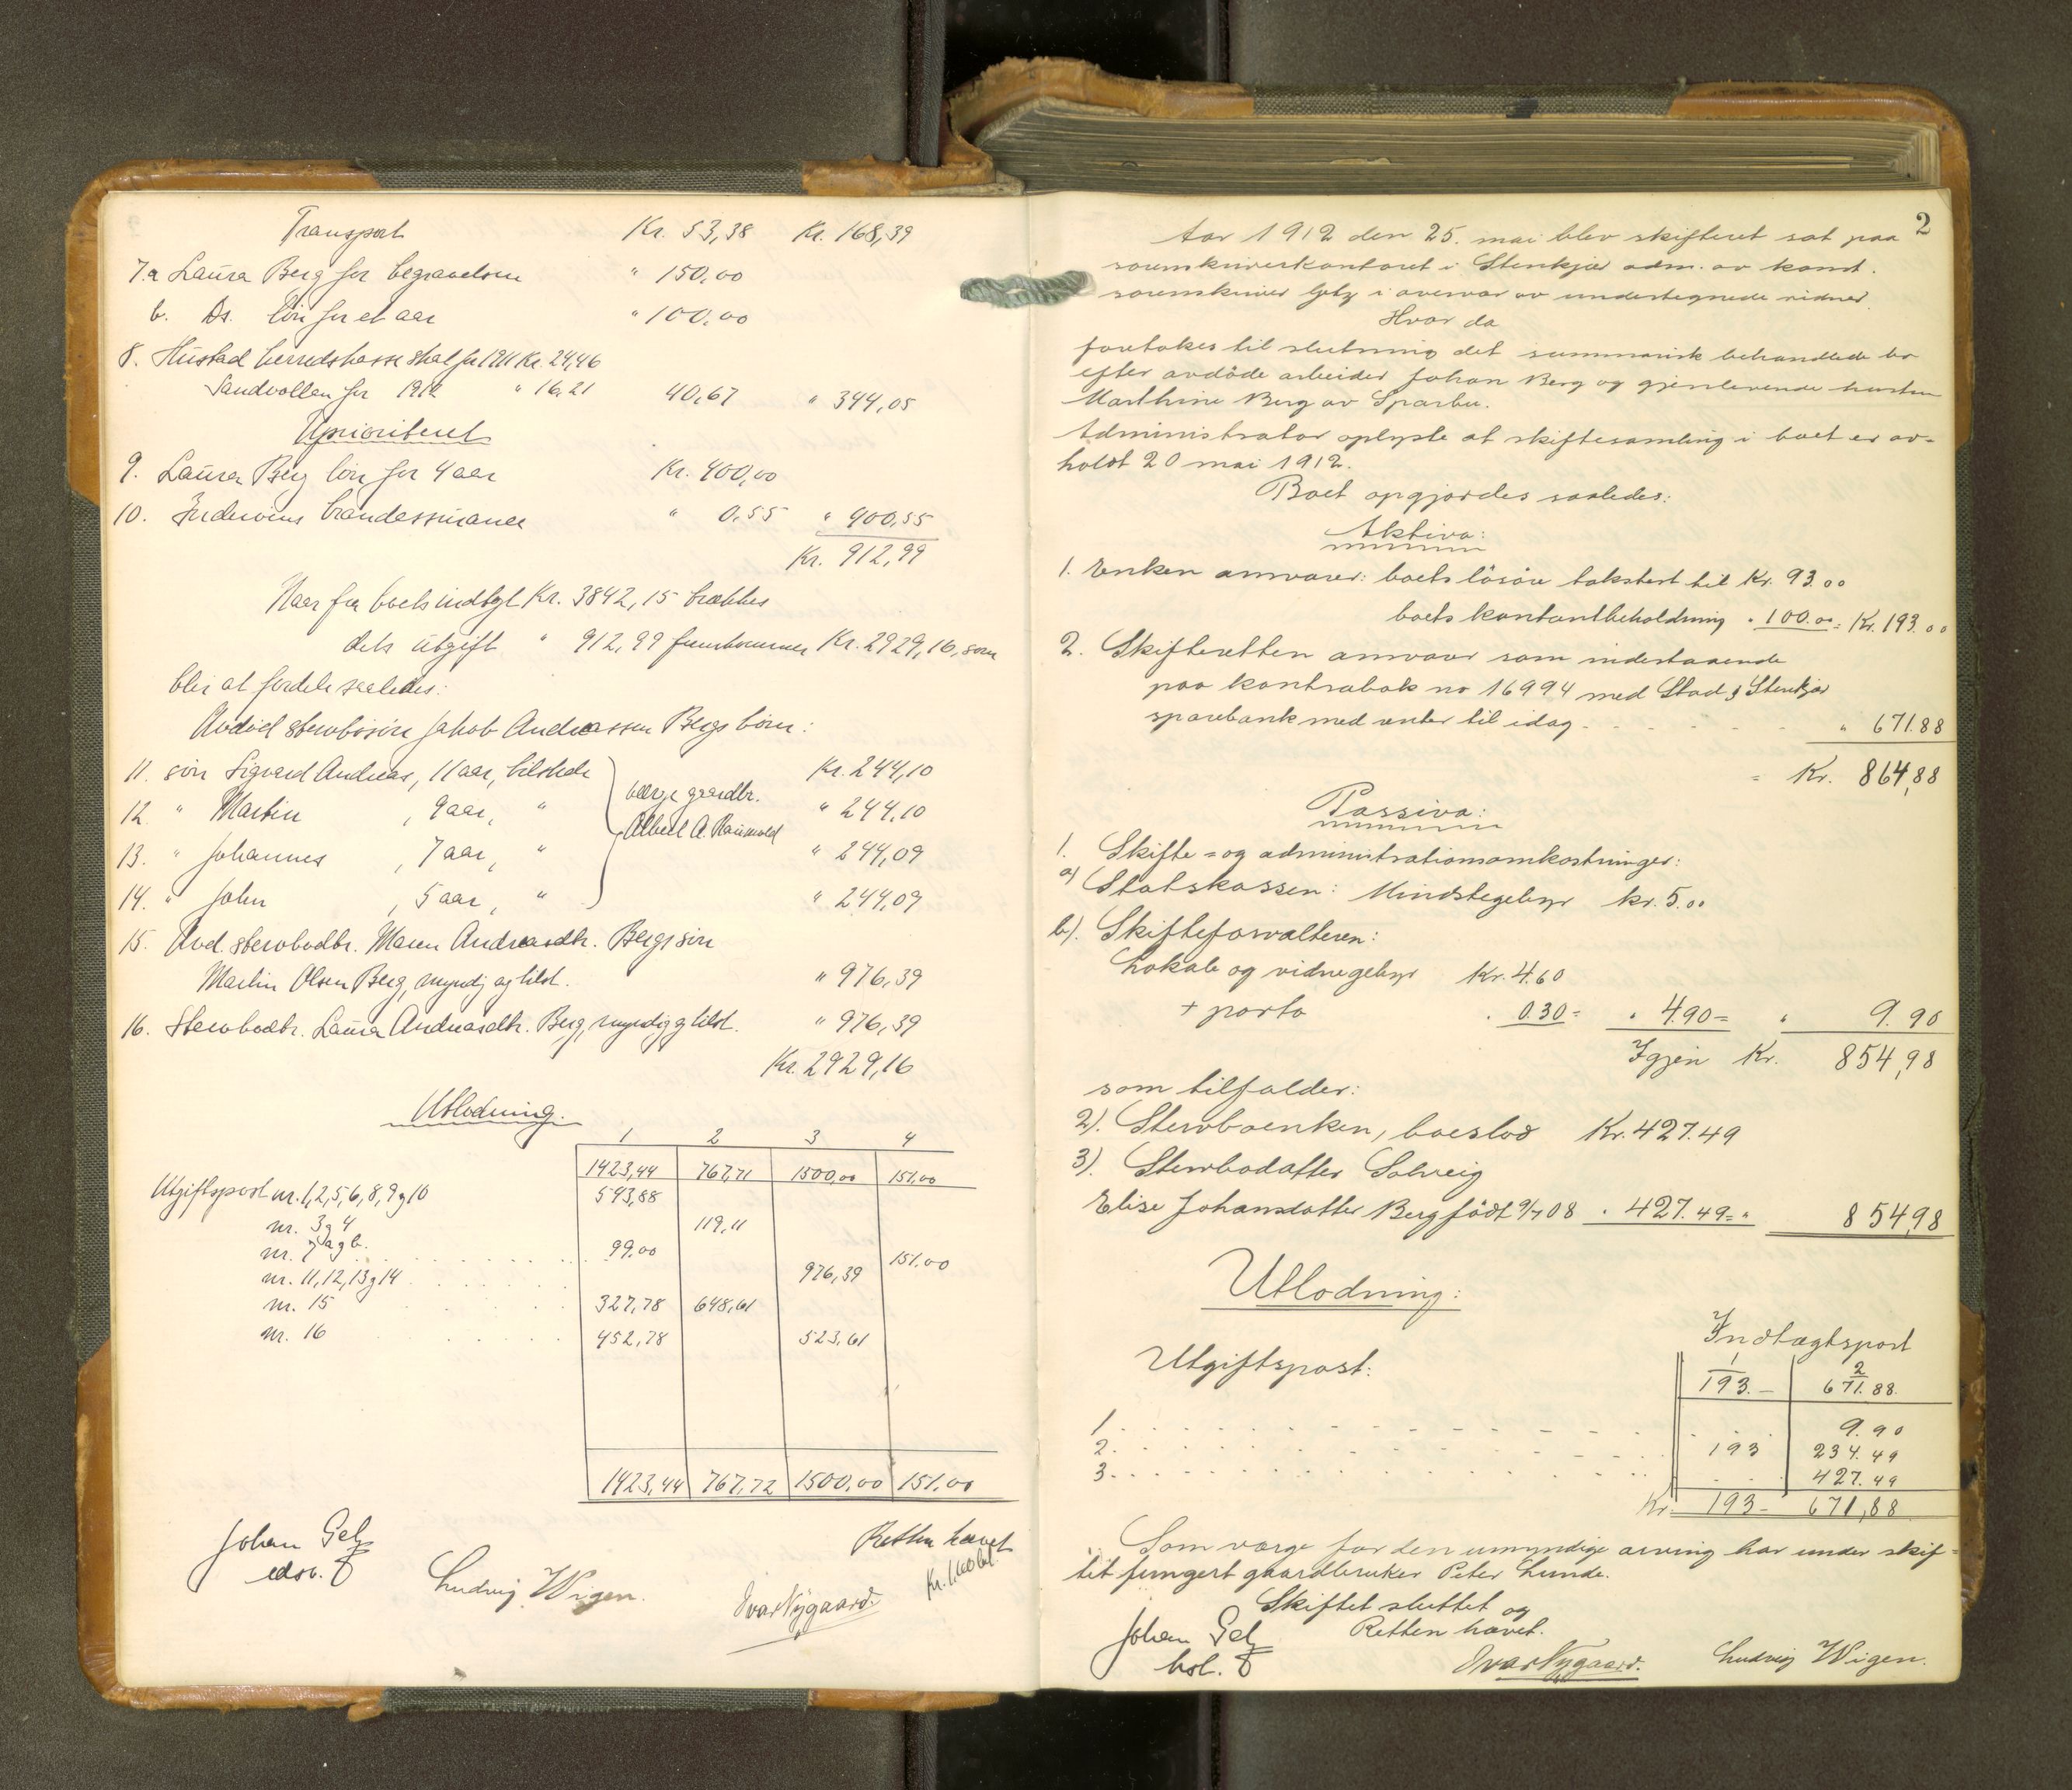 Transport Kr. 53,38 Kr. 168,39
7.a Laura Berg for begravelsen " 150,00
b. Ds. løn for et aar " 100,00
8. Hustad herredskasse skat for 1911 Kr. 24,46
Sandvollen for 1912 " 16,21 40,67 " 344,05
Uprioritert
9. Laura Berg løn for 4 aar Kr. 400,00
10. Inderøens brandassurance " 0,55 " 400,55
Kr. 912,99
Naar fra boets indtægt Kr. 3842,15 trækkes
dets utgift " 912,99 fremkommer Kr. 2929,16, som
blir at fordele saaledes:
Avdød stervbosøn Jakob Andreassen Bergs børn:
11. søn Sigvard Andreas, 11 aar, tilstede Kr. 244,10
12. " Martin, 9 aar, " værge gaardbr. " 244,10
13. " Johannes, 7 aar, " Albert A. " 244,09
14. " John, 5 aar, " " 244,09
15. Avd. stervbodtr. Maren Andreasdtr. Bergs søn
Martin Olsen Berg, myndig og tilst. " 976,39
16. Stervbodtr. Laura Andreasdtr. Berg, myndig og tilst. " 976,39
Kr. 2929,16
Utlodning.
1 2 3 4
1423,44 767,71 1500,00 151,00
Utgiftspost nr. 1,2,5,6,8,9 og 10 543,88
nr. 3 og 4 119,11
nr. 7 a og b. 99,00 151,00
nr. 11,12,13 og 14 976,39
nr. 15 327,78 648,61
nr. 16 452,78 523,61
1423,44 767,72 1500,00 151,00
Retten hævet
Johan Gelz
edsv.
Ludvig Wigen.
Ivar Nygaard.
2
Aar 1912 den 25. mai blev skifteret sat paa
sorenskriverkontoret i Stenkjær adm. av konst.
sorenskriver Gelz i overvær av undertegnede vidner
Hvor da
foretokes til slutning det summarisk behandlede bo
efter avdøde arbeider Johan Berg og gjenlevende hustru
Marthine Berg av Sparbu.
Administrator oplyste at skiftesamling i boet er av-
holdt 20 mai 1912.
Boet opgjordes saaledes:
Aktiva:
1. Enken ansvarer: boets løsøre takstert til Kr. 93.00
boets kontantbeholdning " 100.00 = Kr. 193.00
2. Skifteretten ansvarer som indestaaende
paa kontrabok no 16994 med Stod & Stenkjær
sparebank med renter til idag " 671.88
= Kr. 864,88
Passiva:
1. Skifte- og administrationsomkostninger:
a) Statskassen: Mindstegebyr kr. 5.00
b). Skifteforvalteren:
Lokale og vidnegebyr Kr. 4.60
+ porto " 0.30 = " 4.90 = " 9.90
Igjen Kr. 854,98
som tilfalder:
2). Stervboenken, boeslod Kr. 427.49
3). Stervbodatter Solveig
Elise Johansdatter Berg født 9/7 08 " 427.49 = " 854,98
Utlodning:
Indtægtspost
Utgiftspost: 1 2
193.- 671.88.
1 9.90
2. 193 234.49
3. 427.49
Kr. 193- 671,88
Som værge for den umyndige arving har under skif-
tet fungert gaardbruker Peter Lunde.
Skiftet sluttet og
Retten hævet.
Johan Gelz
kst.
Ivar Nygaard.
Ludvig Wigen.